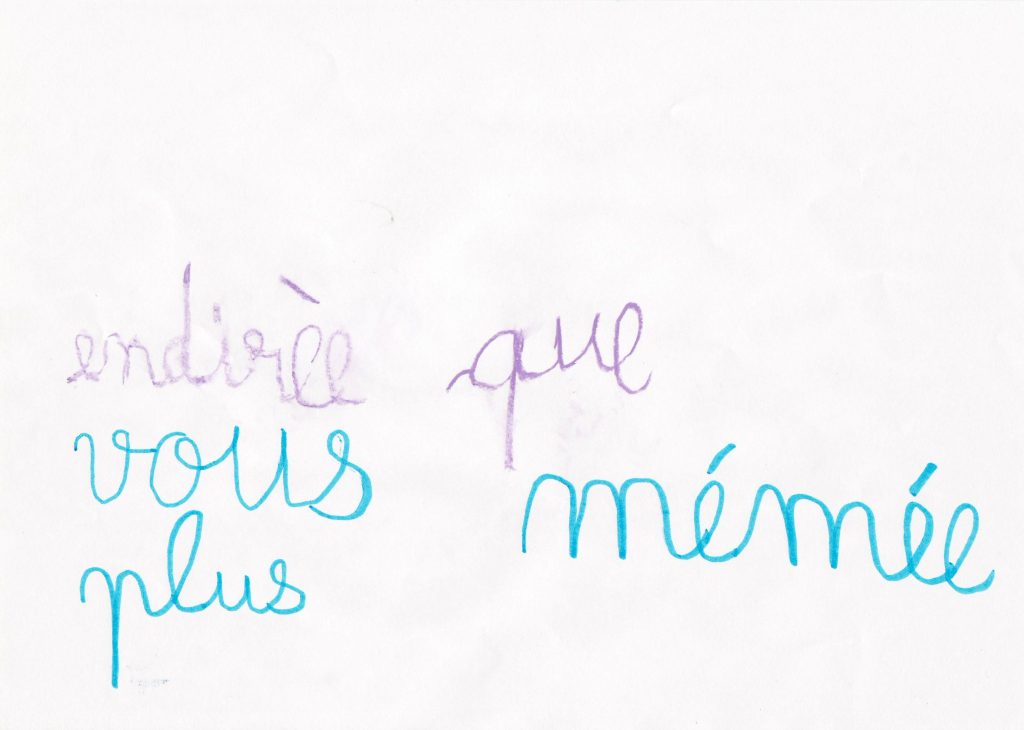 que
vous
mémée
plus